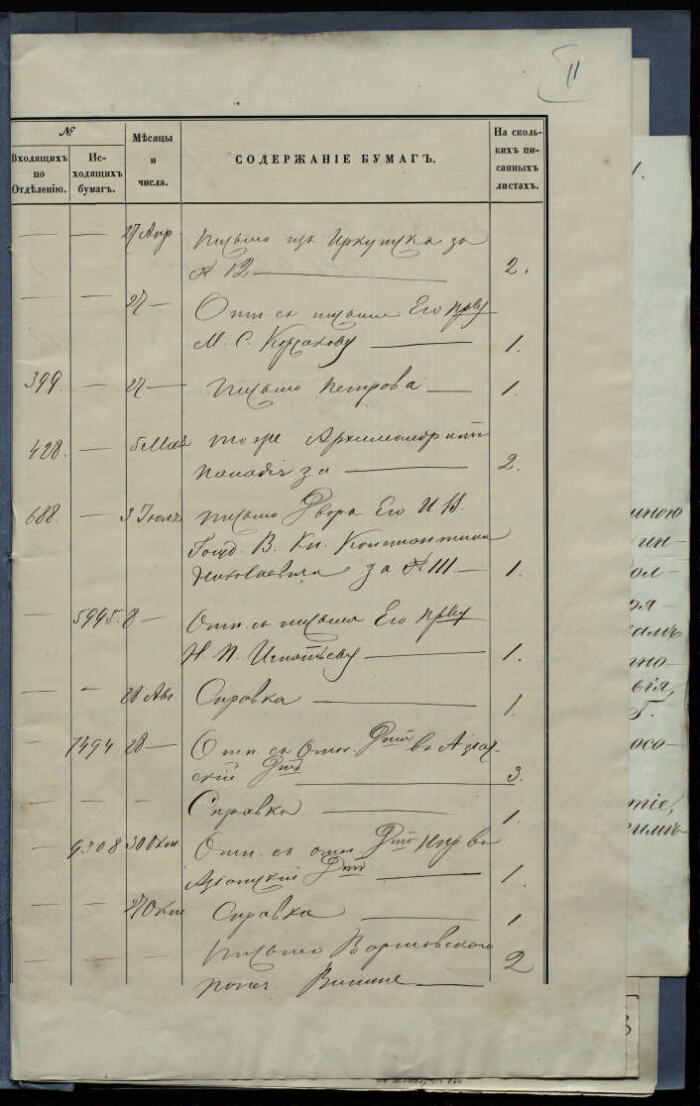 11
№
Входящихъ по Отдѣленію.
Ис-ходящихъ бумагъ.
Мѣсяцы и числа.
СОДЕРЖАНІЕ БУМАГЪ.
На сколь-кихъ пи-санныхъ листахъ.
— — 27 Апр. письмо изъ Иркутска за
№ 12 — 2.
— — 27 — Отп. съ письма Его прву
М. С. Корсакову — 1.
399. — 27 — письмо Петрова — 1.
428. — 5 Мая тоже Архимандрита
за — 2.
688. — 3 Іюля письмо Двора Его И. В.
Госуд. В. Кн. Константина
Николаевича за № 111 — 1.
5995. 8 — Отп. съ письма Его прву
Н. П. Игнатьеву — 1.
— — 28 Авг. Справка — 1.
7494 28 — Отп. съ отн. въ Азіат-
скій — 3.
— — Справка — 1.
9308 30 Окт. Отп. съ отн. въ
Азіатскій — 1.
27 Окт. Справка — 1
— — письмо Варшавского
2
мною
ин-
ол-
ря-
но-
вія,
осо-
тіе,